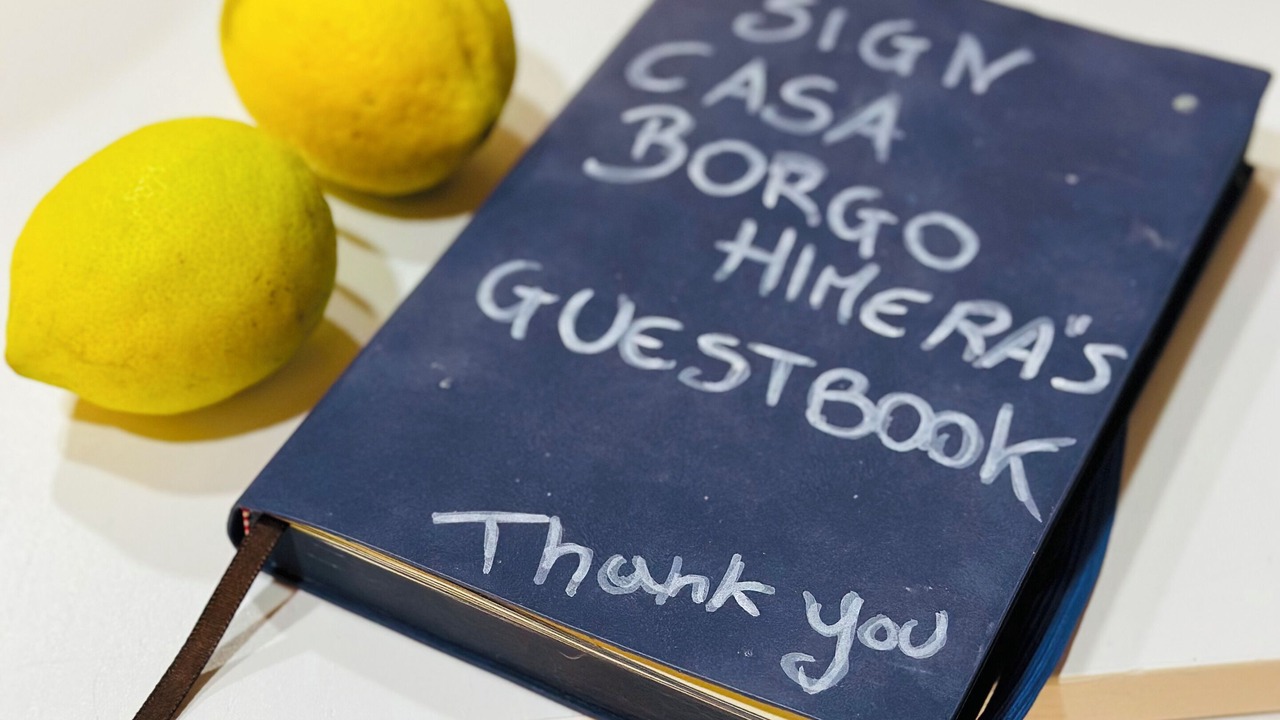 SIGN
CASA
BORGO
HIMERA"S
GUESTBOOK
Thank you